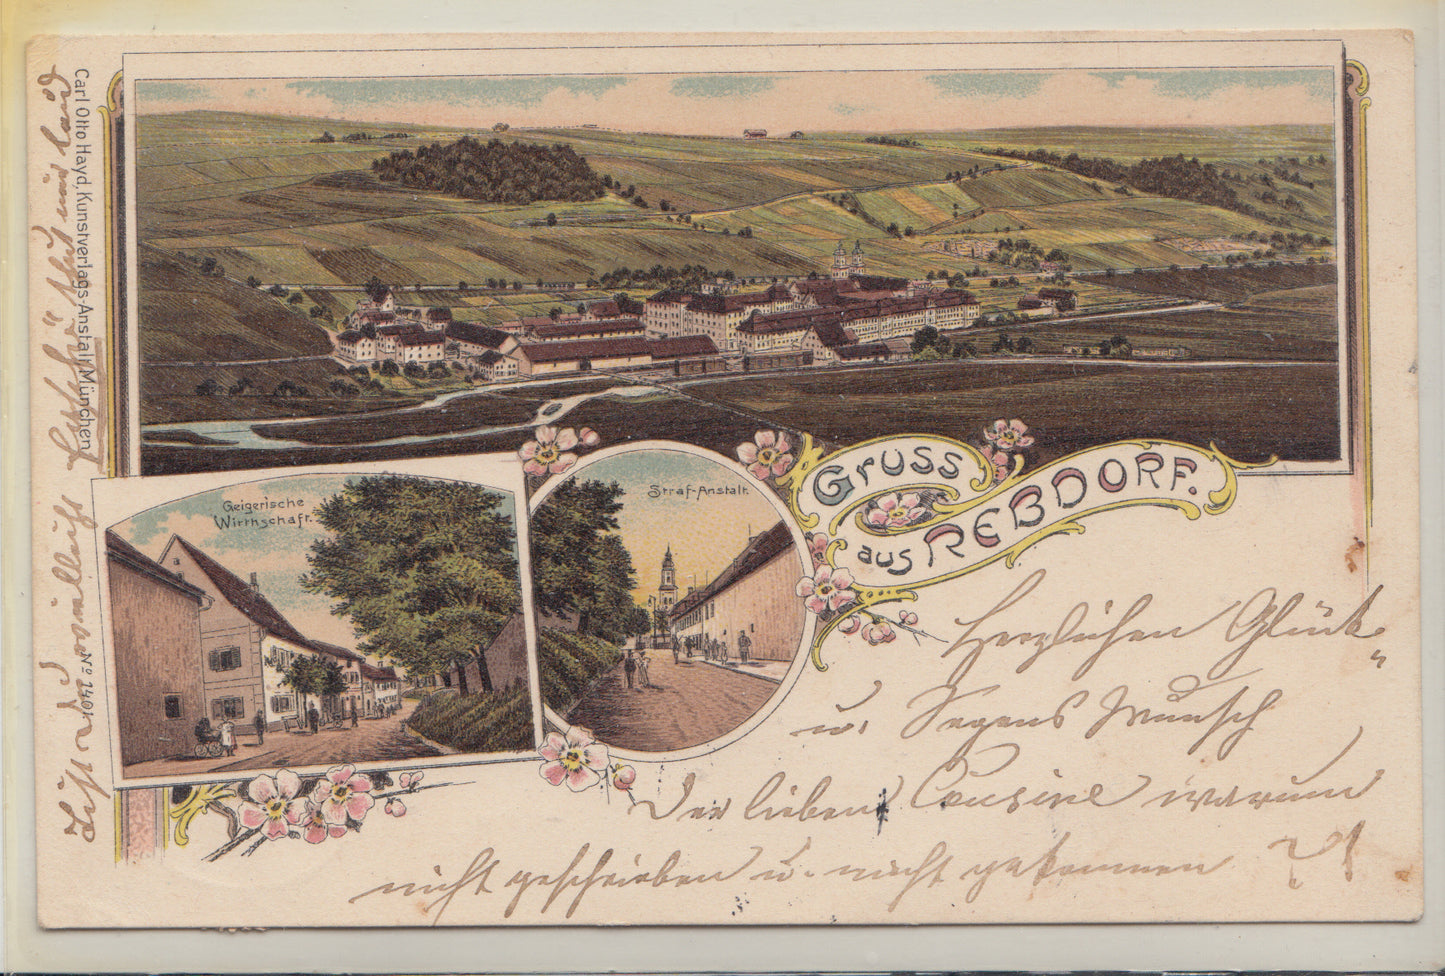 Carl Otto Hayd, Kunstverlags-Anstalt, München
Nº 1401
Geigerische
Wirthschaft.
Straf-Anstalt.
Gruss
aus REBDORF.
Herzlichen Glück-
u. Segens Wunsch
Der lieben Cousine warum
nicht geschrieben u. nicht gekommen ?!
thut mir laid